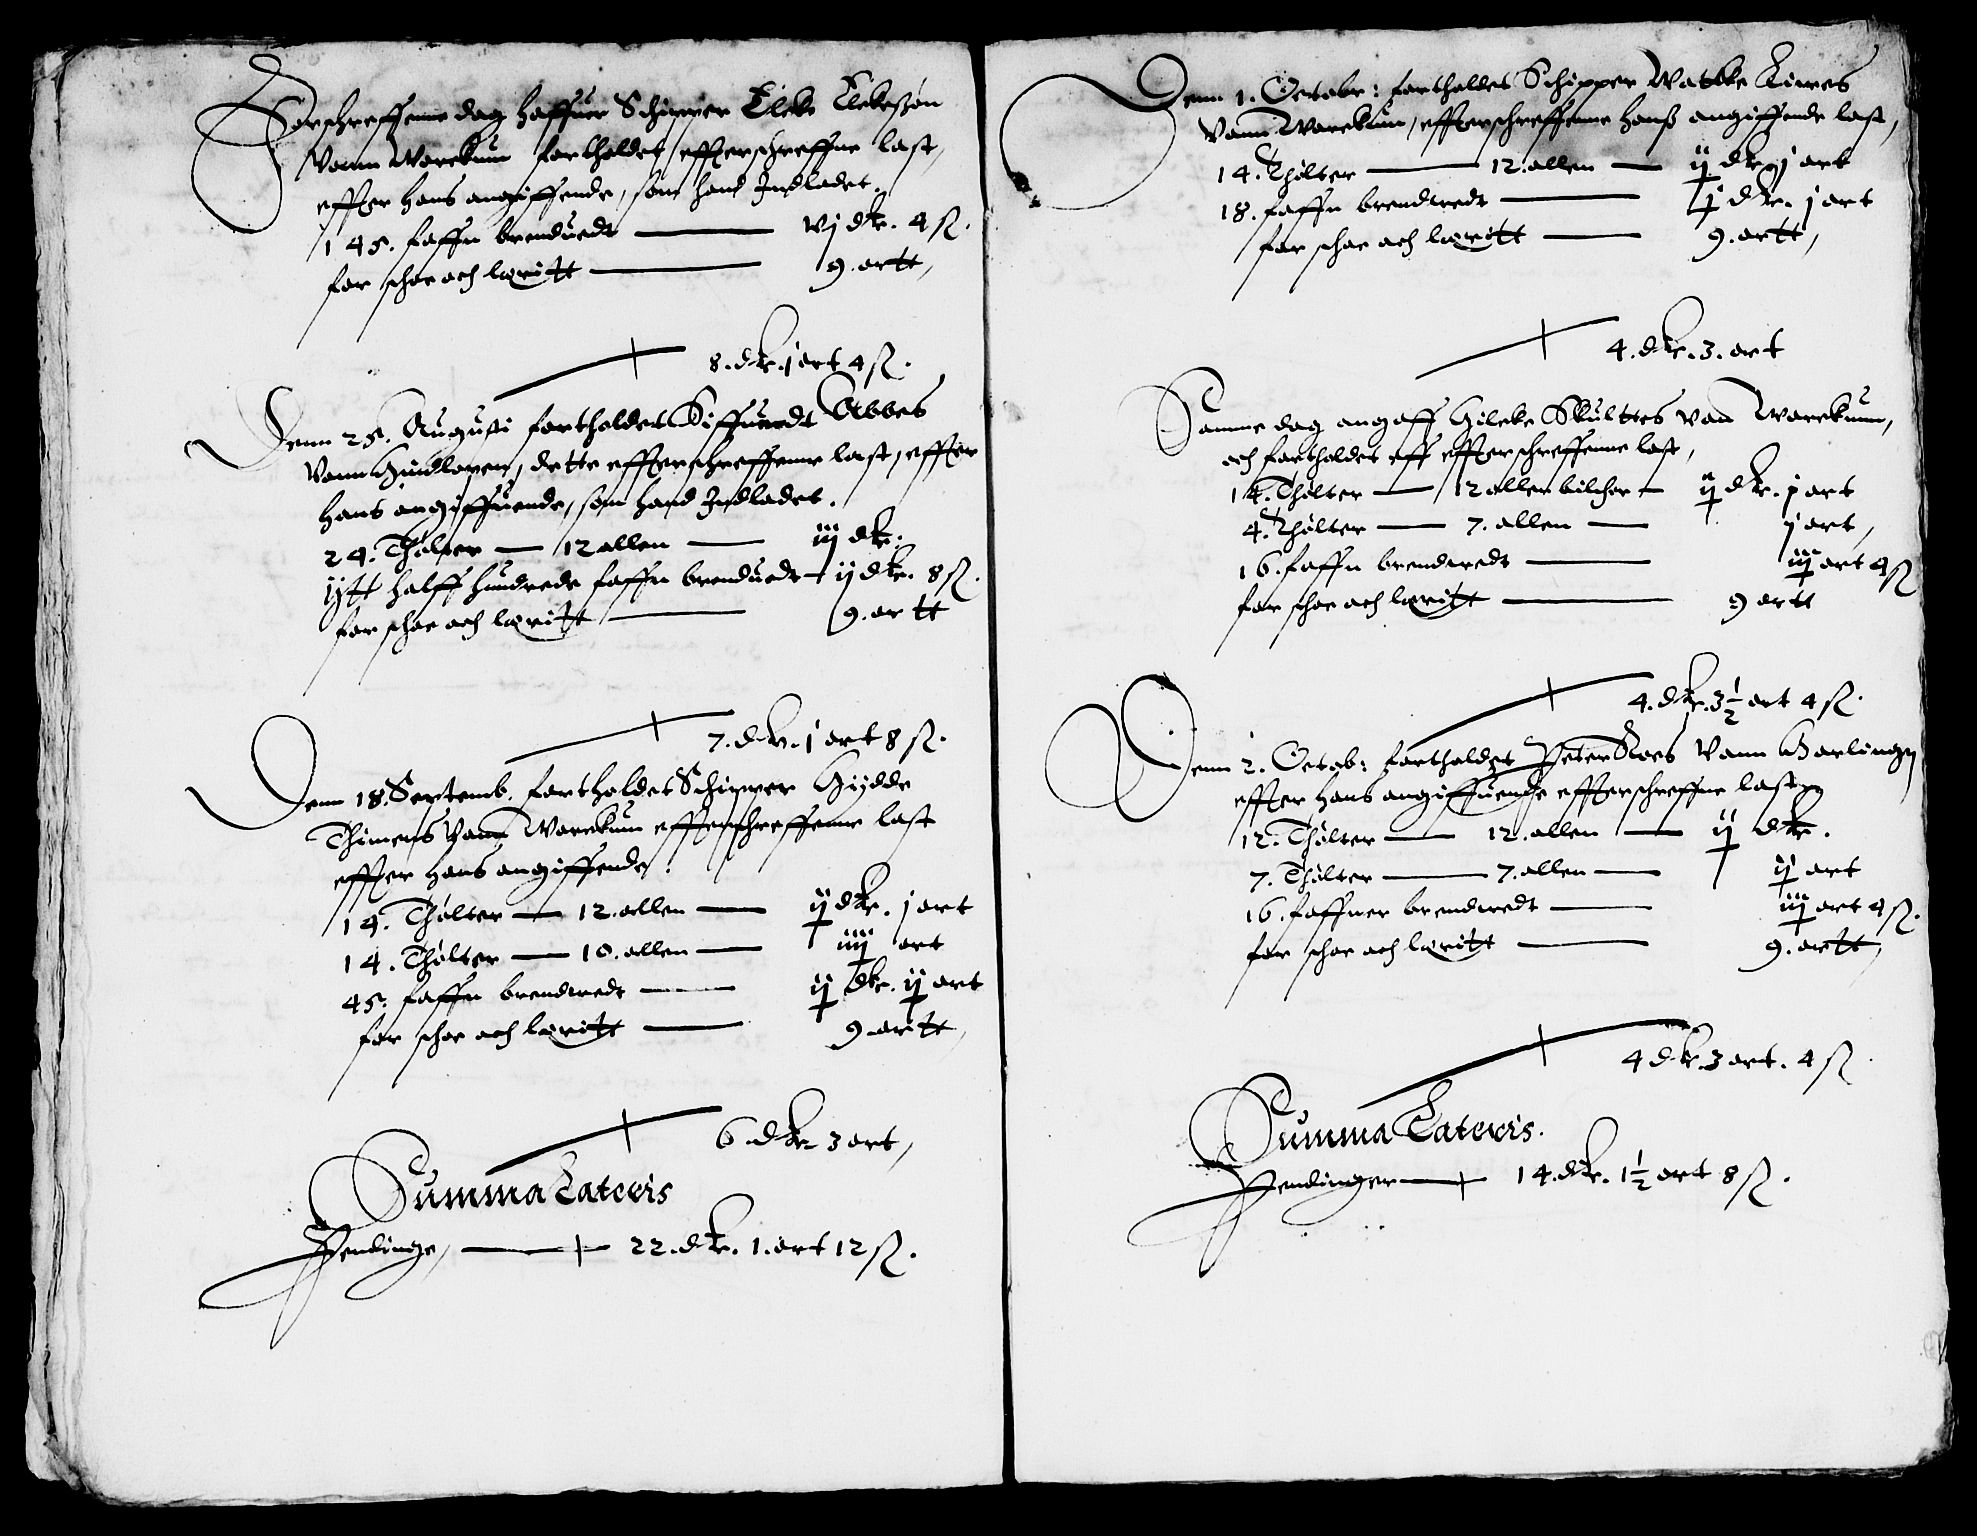 Forschreffene dag haffuer Schipper Eleke Elekeßøn
Vonn Worekum fortholdet effterschreffne last,
effter hans angiffende, som hand Indladet.
145. faffn brenduedt — vj dlr. 4 ß.
for schoe och løritt — 9. ortt,
8. dlr. j ort 4 ß.
Denn 25. Augusti fortholdet Siffuerdt Abbes
Vonn Hindlopen, dette effterschreffenne last, effter
hans angiffuende, som hand Indladet.
24. Thølter — 12 allen — iiij dlr.
ijtt halff hundrede faffn brenduedt — ij dlr. 8 ß.
for schoe och løritt — 9. ortt
7. dlr. j ort 8 ß.
Denn 18. Septemb. fortholdet Schipper Hydde
Thimens Vonn Worekum effterschreffenne last
effter hans angiffende.
14. Thølter — 12. allen — ij dlr. j ort
14. Thølter — 10. allen — iiij ort
45. faffn brendwedt — ij dlr. ij ort
for schoe och løritt — 9. ortt,
6. dlr 3 ort,
Summa Lateris
Pendinge, — 22. dlr. 1. ort 12 ß.
Denn 1. Octobr: fortholdet Schipper Watkke
Vonn Worekum, effterschreffenne hans angiffende last,
14. Thølter — 12. allen — ij dlr. j ort
18. faffn brendwedt — j dlr. j ort
for schoe och løritt — 9. ortt,
4. dlr. 3. ort
Samme dag angaff Gileke Skulttes von Worekum,
och fortholdet eff effterschreffenne last,
14. Thølter — 12 allen — ij dlr. j ort
4. Thølter — 7. allen — j ort,
16. faffn brendwedt — iij ort 4 ß
for schoe och løritt — 9 ortt
4. dlr. 3½ ort 4 ß.
Denn 2. Octob: fortholdet Peter Roes Vonn Harlingen
effter hans angiffuende effterschreffne last
12. Thølter — 12. allen — ij dlr.
7. Thølter — 7. allen — ij ort
16. faffner brendwedt — iij ort 4 ß.
for schoe och løritt — 9. ortt,
4 dlr. 3 ort. 4 ß
Summa Lateris.
Pendinger — 14. dlr. 1½ ort 8 ß.